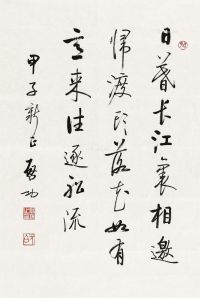 日暮长江裏相邀
歸渡头落花如有
意来往逐船流
甲子新正 启功